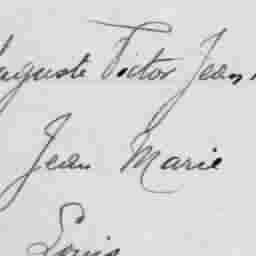 Auguste Victor Jean
Jean Marie
Louis